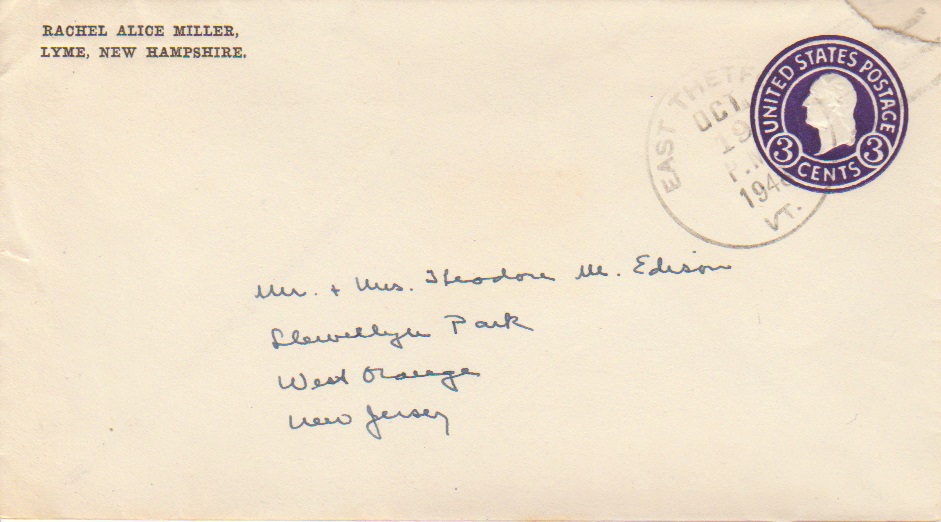 RACHEL ALICE MILLER,
LYME, NEW HAMPSHIRE.
EAST
OCT
19
P.M
VT.
UNITED STATES POSTAGE
3 3
CENTS
Mr. + Mrs. Theodore M. Edison
Llewellyn Park
West Orange
New Jersey